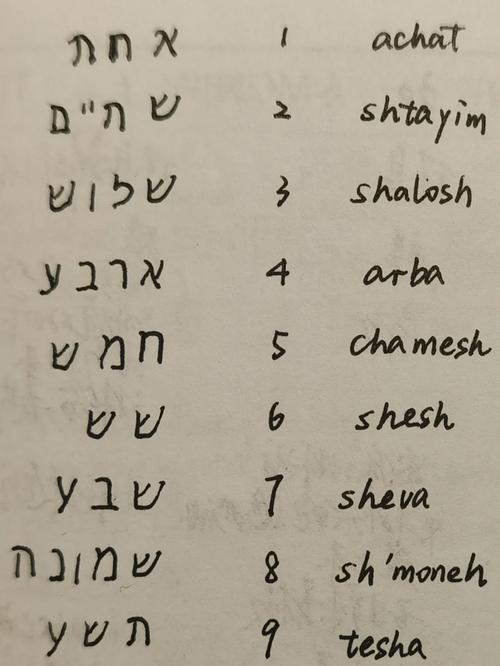 אחת 1 achat
שתיים 2 shtayim
שלוש 3 shalosh
ארבע 4 arba
חמש 5 chamesh
שש 6 shesh
שבע 7 sheva
שמונה 8 sh'moneh
תשע 9 tesha